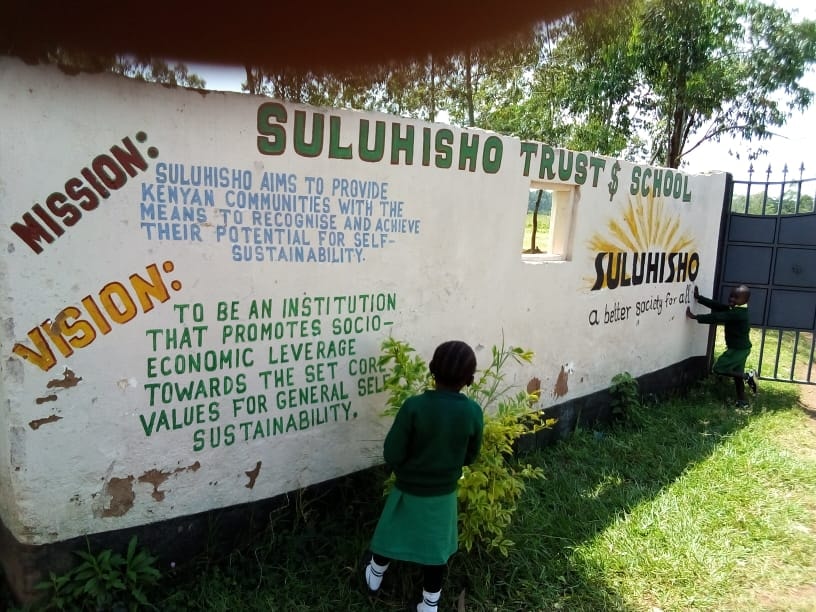 SULUHISHO TRUST $ SCHOOL
MISSION:
SULUHISHO AIMS TO PROVIDE
KENYAN COMMUNITIES WITH THE
MEANS TO RECOGNISE AND ACHIEVE
THEIR POTENTIAL FOR SELF-
SUSTAINABILITY.
VISION:
TO BE AN INSTITUTION
THAT PROMOTES SOCIO-
ECONOMIC LEVERAGE
TOWARDS THE SET CORE
VALUES FOR GENERAL SELF
SUSTAINABILITY.
SULUHISHO
a better society for all